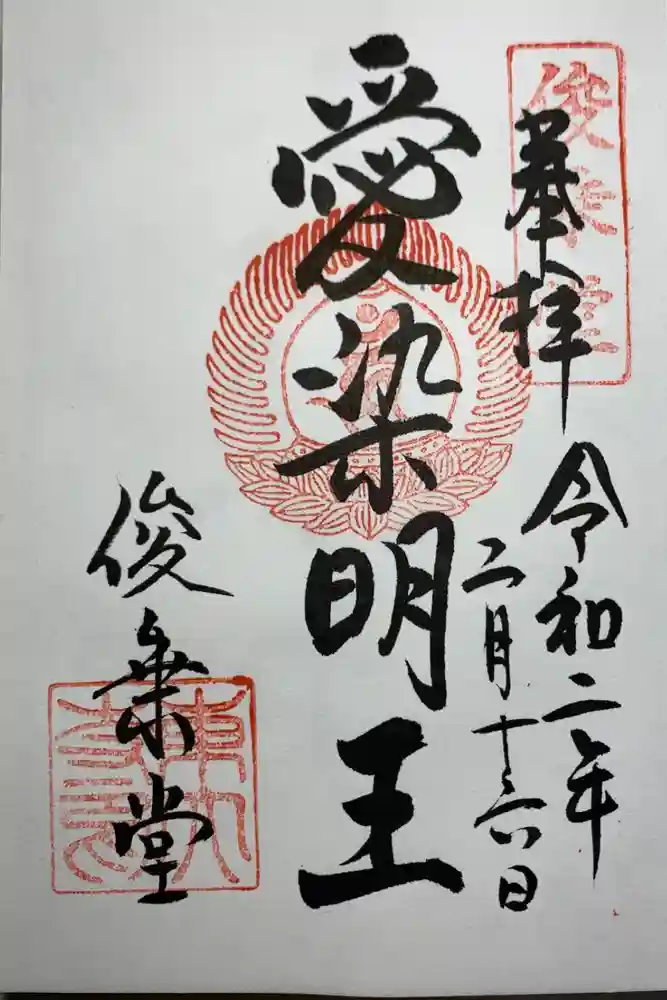 俊乗堂
奉拝
令和二年
二月十六日
愛染明王
俊乗堂